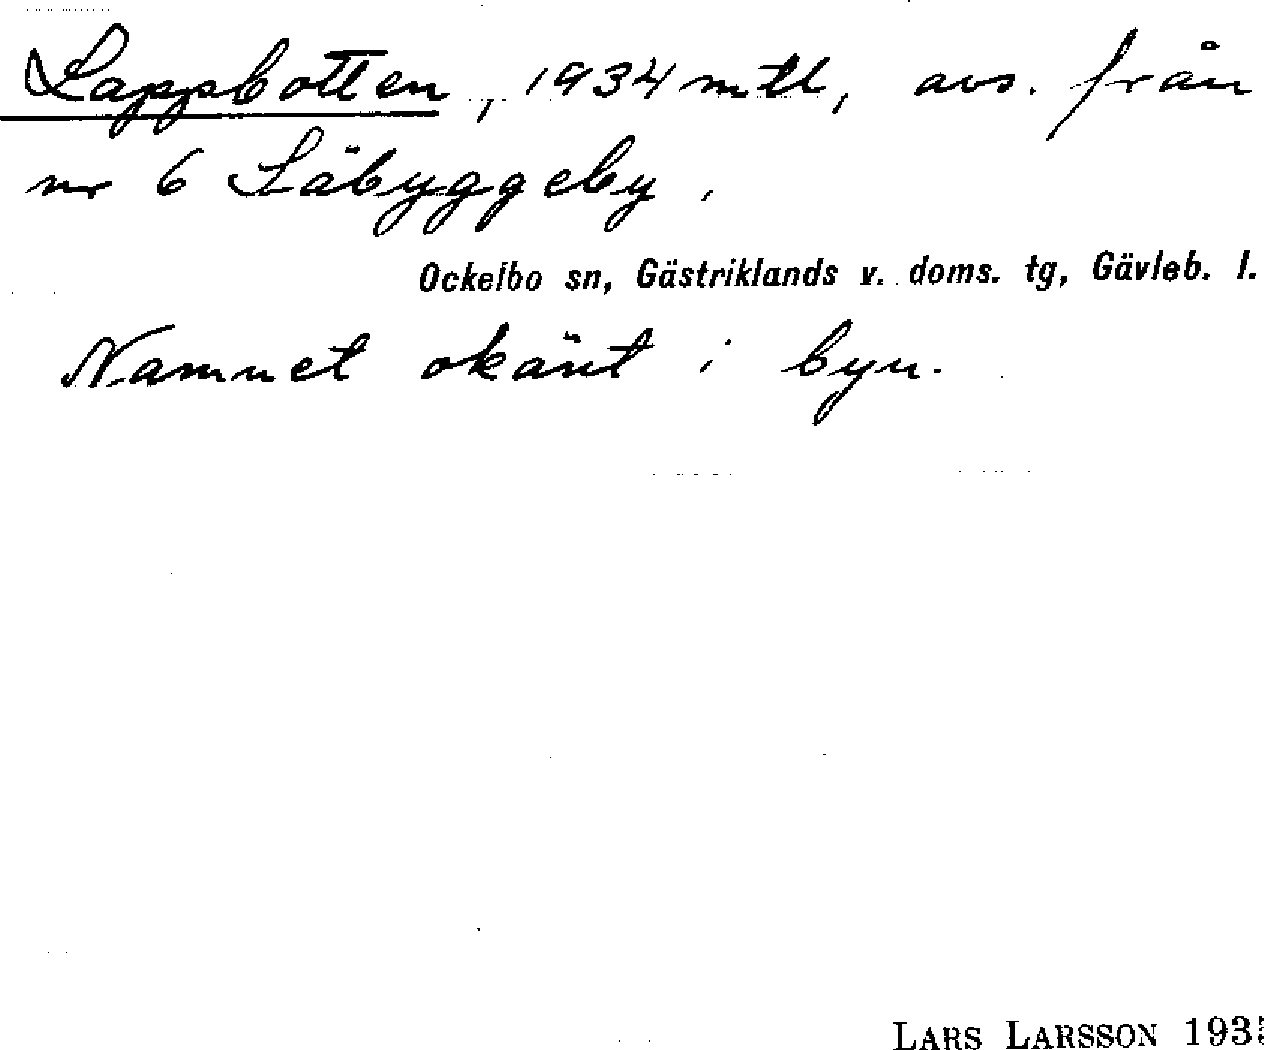 Lappbotten, 1934 mtl, avs. från
nr 6 Säbyggeby.
Ockelbo sn, Gästriklands v. doms. tg, Gävleb. l.
Namnet okänt i byn.
LARS LARSSON